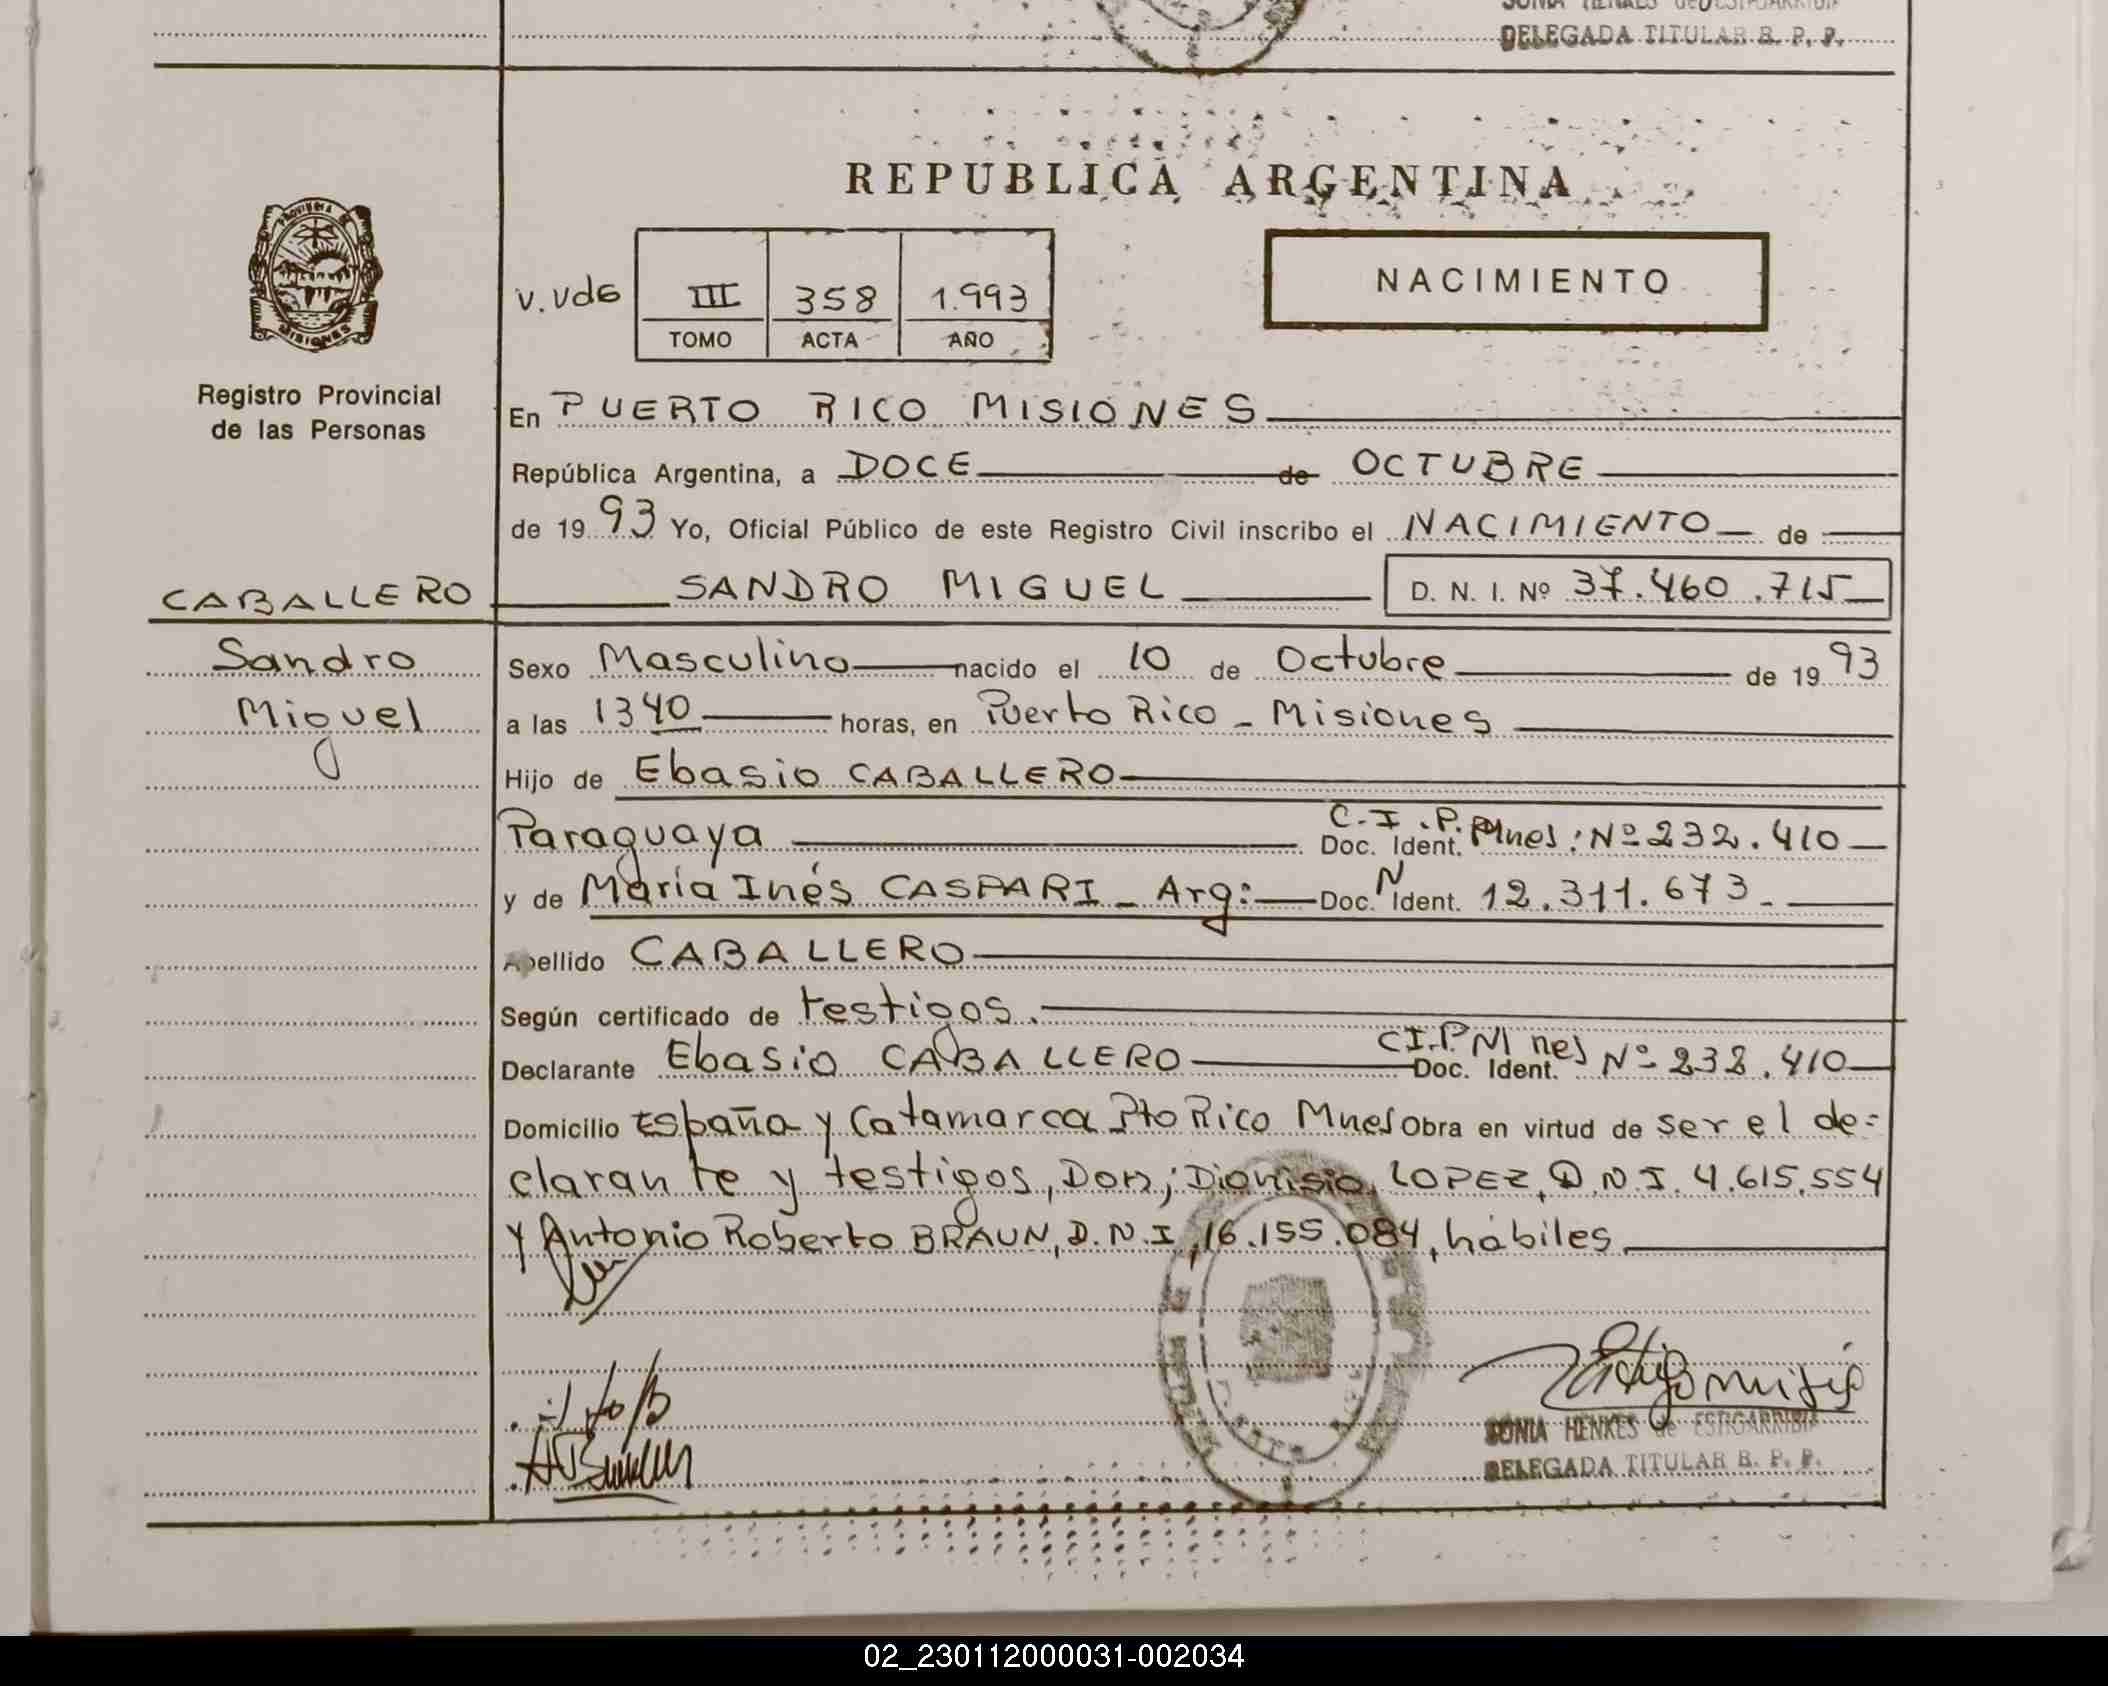 DELEGADA TITULAR R. P. P.
REPUBLICA ARGENTINA
PROVINCIA DE
MISIONES
Registro Provincial
de las Personas
III 358 1.993
TOMO ACTA AÑO
NACIMIENTO
En PUERTO RICO MISIONES
República Argentina, a DOCE de OCTUBRE
de 1993 Yo, Oficial Público de este Registro Civil inscribo el NACIMIENTO de
CABALLERO SANDRO MIGUEL D. N. I. Nº 37.460.715
Sandro
Miguel
Sexo Masculino nacido el 10 de Octubre de 1993
a las 1340 horas, en Puerto Rico - Misiones
Hijo de Ebasio CABALLERO
Paraguaya Doc. Ident. C.I.P. Mnes: Nº 232.410
y de María Inés CASPARI - Arg: Doc. N Ident. 12.311.673.
Apellido CABALLERO
Según certificado de testigos.
Declarante Ebasio CABALLERO Doc. Ident. C.I.P. Mnes Nº 232.410
Domicilio España y Catamarca Pto Rico Mnes Obra en virtud de ser el de=
clarante y testigos, Don; Dionisio LOPEZ, D.N.I. 4.615.554
y Antonio Roberto BRAUN, D.N.I, 16.155.084, hábiles
SONIA HENKES de ESTIGARRIBIA
DELEGADA TITULAR R. P. P.
02_230112000031-002034